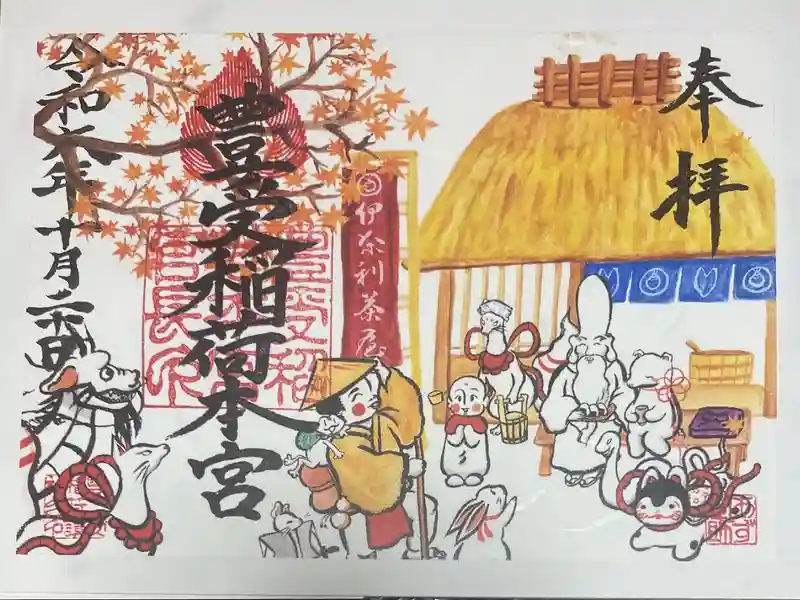 奉拝
豊受稲荷本宮
令和六年十月二十四日
伊奈利茶屋